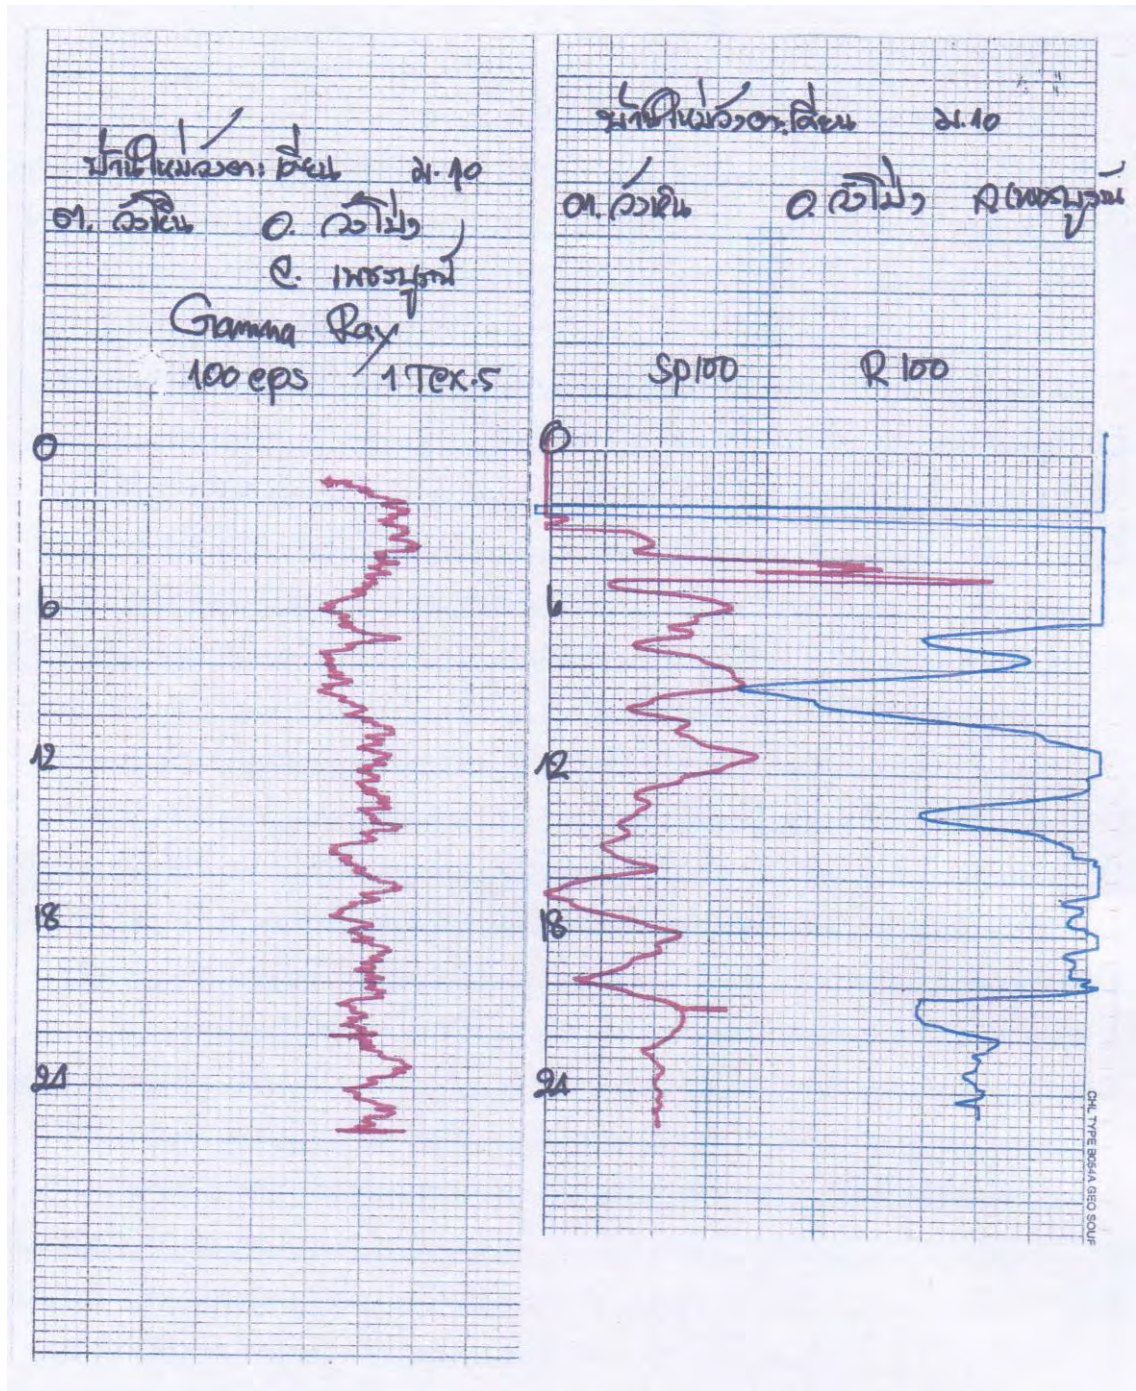 บ้านใหม่วังตะเคียน ม.10
ต. วังหิน อ. วังโป่ง
จ. เพชรบูรณ์
Gamma Ray
100 cps / 1 Tex.5
0
6
12
18
24
บ้านใหม่วังตะเคียน ม.10
ต. วังหิน อ. วังโป่ง จ.เพชรบูรณ์
Sp100 R 100
0
6
12
18
24
CHL TYPE 8054A GEO SOUF